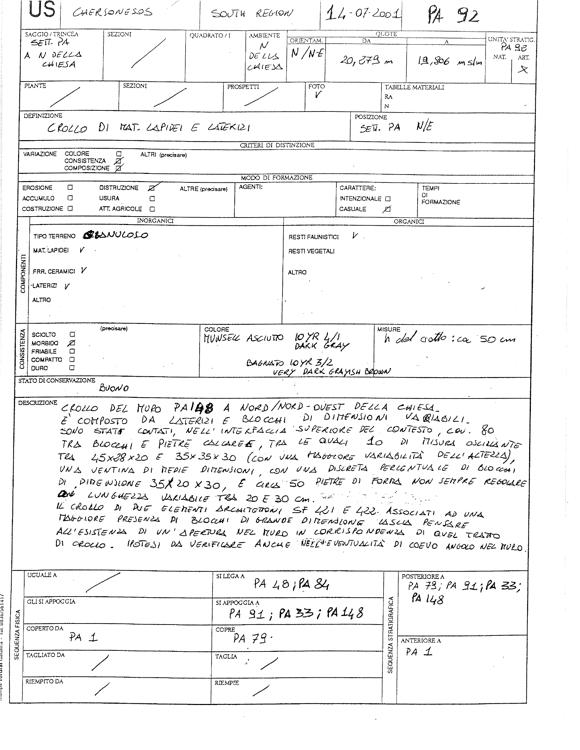 US CHERSONESOS SOUTH REGION 14-07-2001 PA 92
SAGGIO / TRINCEA SETT. PA A N DELLA CHIESA
SEZIONI
QUADRATO / I
AMBIENTE N DELLA CHIESA
ORIENTAM. N/N-E
QUOTE
DA 20,279 m
A 19,806 mslm
UNITA' STRATIG. PA 92
NAT. ART. X
PIANTE
SEZIONI
PROSPETTI
FOTO V
TABELLE MATERIALI
RA
N
DEFINIZIONE
CROLLO DI MAT. LAPIDEI E LATERIZI
POSIZIONE
SETT. PA N/E
CRITERI DI DISTINZIONE
VARIAZIONE COLORE ALTRI (precisare)
CONSISTENZA
COMPOSIZIONE
MODO DI FORMAZIONE
EROSIONE DISTRUZIONE ALTRE (precisare) AGENTI: CARATTERE: TEMPI
ACCUMULO USURA INTENZIONALE DI
COSTRUZIONE ATT. AGRICOLE CASUALE FORMAZIONE
COMPONENTI
INORGANICI
TIPO TERRENO GRANULOSO
MAT. LAPIDEI V
FRR. CERAMICI V
LATERIZI V
ALTRO
ORGANICI
RESTI FAUNISTICI V
RESTI VEGETALI
ALTRO
CONSISTENZA
(precisare)
SCIOLTO
MORBIDO
FRIABILE
COMPATTO
DURO
COLORE
MUNSELL ASCIUTTO 10 YR 4/1
DARK GRAY
BAGNATO 10 YR 3/2
VERY DARK GRAYISH BROWN
MISURE
h del crollo: ca 50 cm
STATO DI CONSERVAZIONE
BUONO
DESCRIZIONE
CROLLO DEL MURO PA148 A NORD/NORD-OVEST DELLA CHIESA.
È COMPOSTO DA LATERIZI E BLOCCHI DI DIMENSIONI VARIABILI.
SONO STATE CONTATI, NELL'INTERFACCIA SUPERIORE DEL CONTESTO, CON. 80
TRA BLOCCHI E PIETRE CALCAREE, TRA LE QUALI 10 DI MISURA OSCILLANTE
TRA 45x28x20 E 35x35x30 (CON UNA MAGGIORE VARIABILITÀ DELL'ALTEZZA),
UNA VENTINA DI MEDIE DIMENSIONI, CON UNA DISCRETA PERCENTUALE DI BLOCCHI
DI DIMENSIONE 35x20x30, E CIRCA 50 PIETRE DI FORMA NON SEMPRE REGOLARE
LUNGHEZZA VARIABILE TRA 20 E 30 cm.
IL CROLLO DI DUE ELEMENTI ARCHITETTONI SF 421 E 422 ASSOCIATI AD UNA
MAGGIORE PRESENZA DI BLOCCHI DI GRANDE DIMENSIONE LASCIA PENSARE
ALL'ESISTENZA DI UN'APERTURA NEL MURO IN CORRISPONDENZA DI QUEL TRATTO
DI CROLLO. IPOTESI DA VERIFICARE ANCHE NELL'EVENTUALITÀ DI COEVO ANGOLO NEL MURO.
SEQUENZA FISICA
UGUALE A
SI LEGA A
PA 48; PA 84
GLI SI APPOGGIA
SI APPOGGIA A
PA 91; PA 33; PA 148
COPERTO DA
PA 1
COPRE
PA 79
TAGLIATO DA
TAGLIA
RIEMPITO DA
RIEMPIE
SEQUENZA STRATIGRAFICA
POSTERIORE A
PA 79; PA 91; PA 33;
PA 148
ANTERIORE A
PA 1